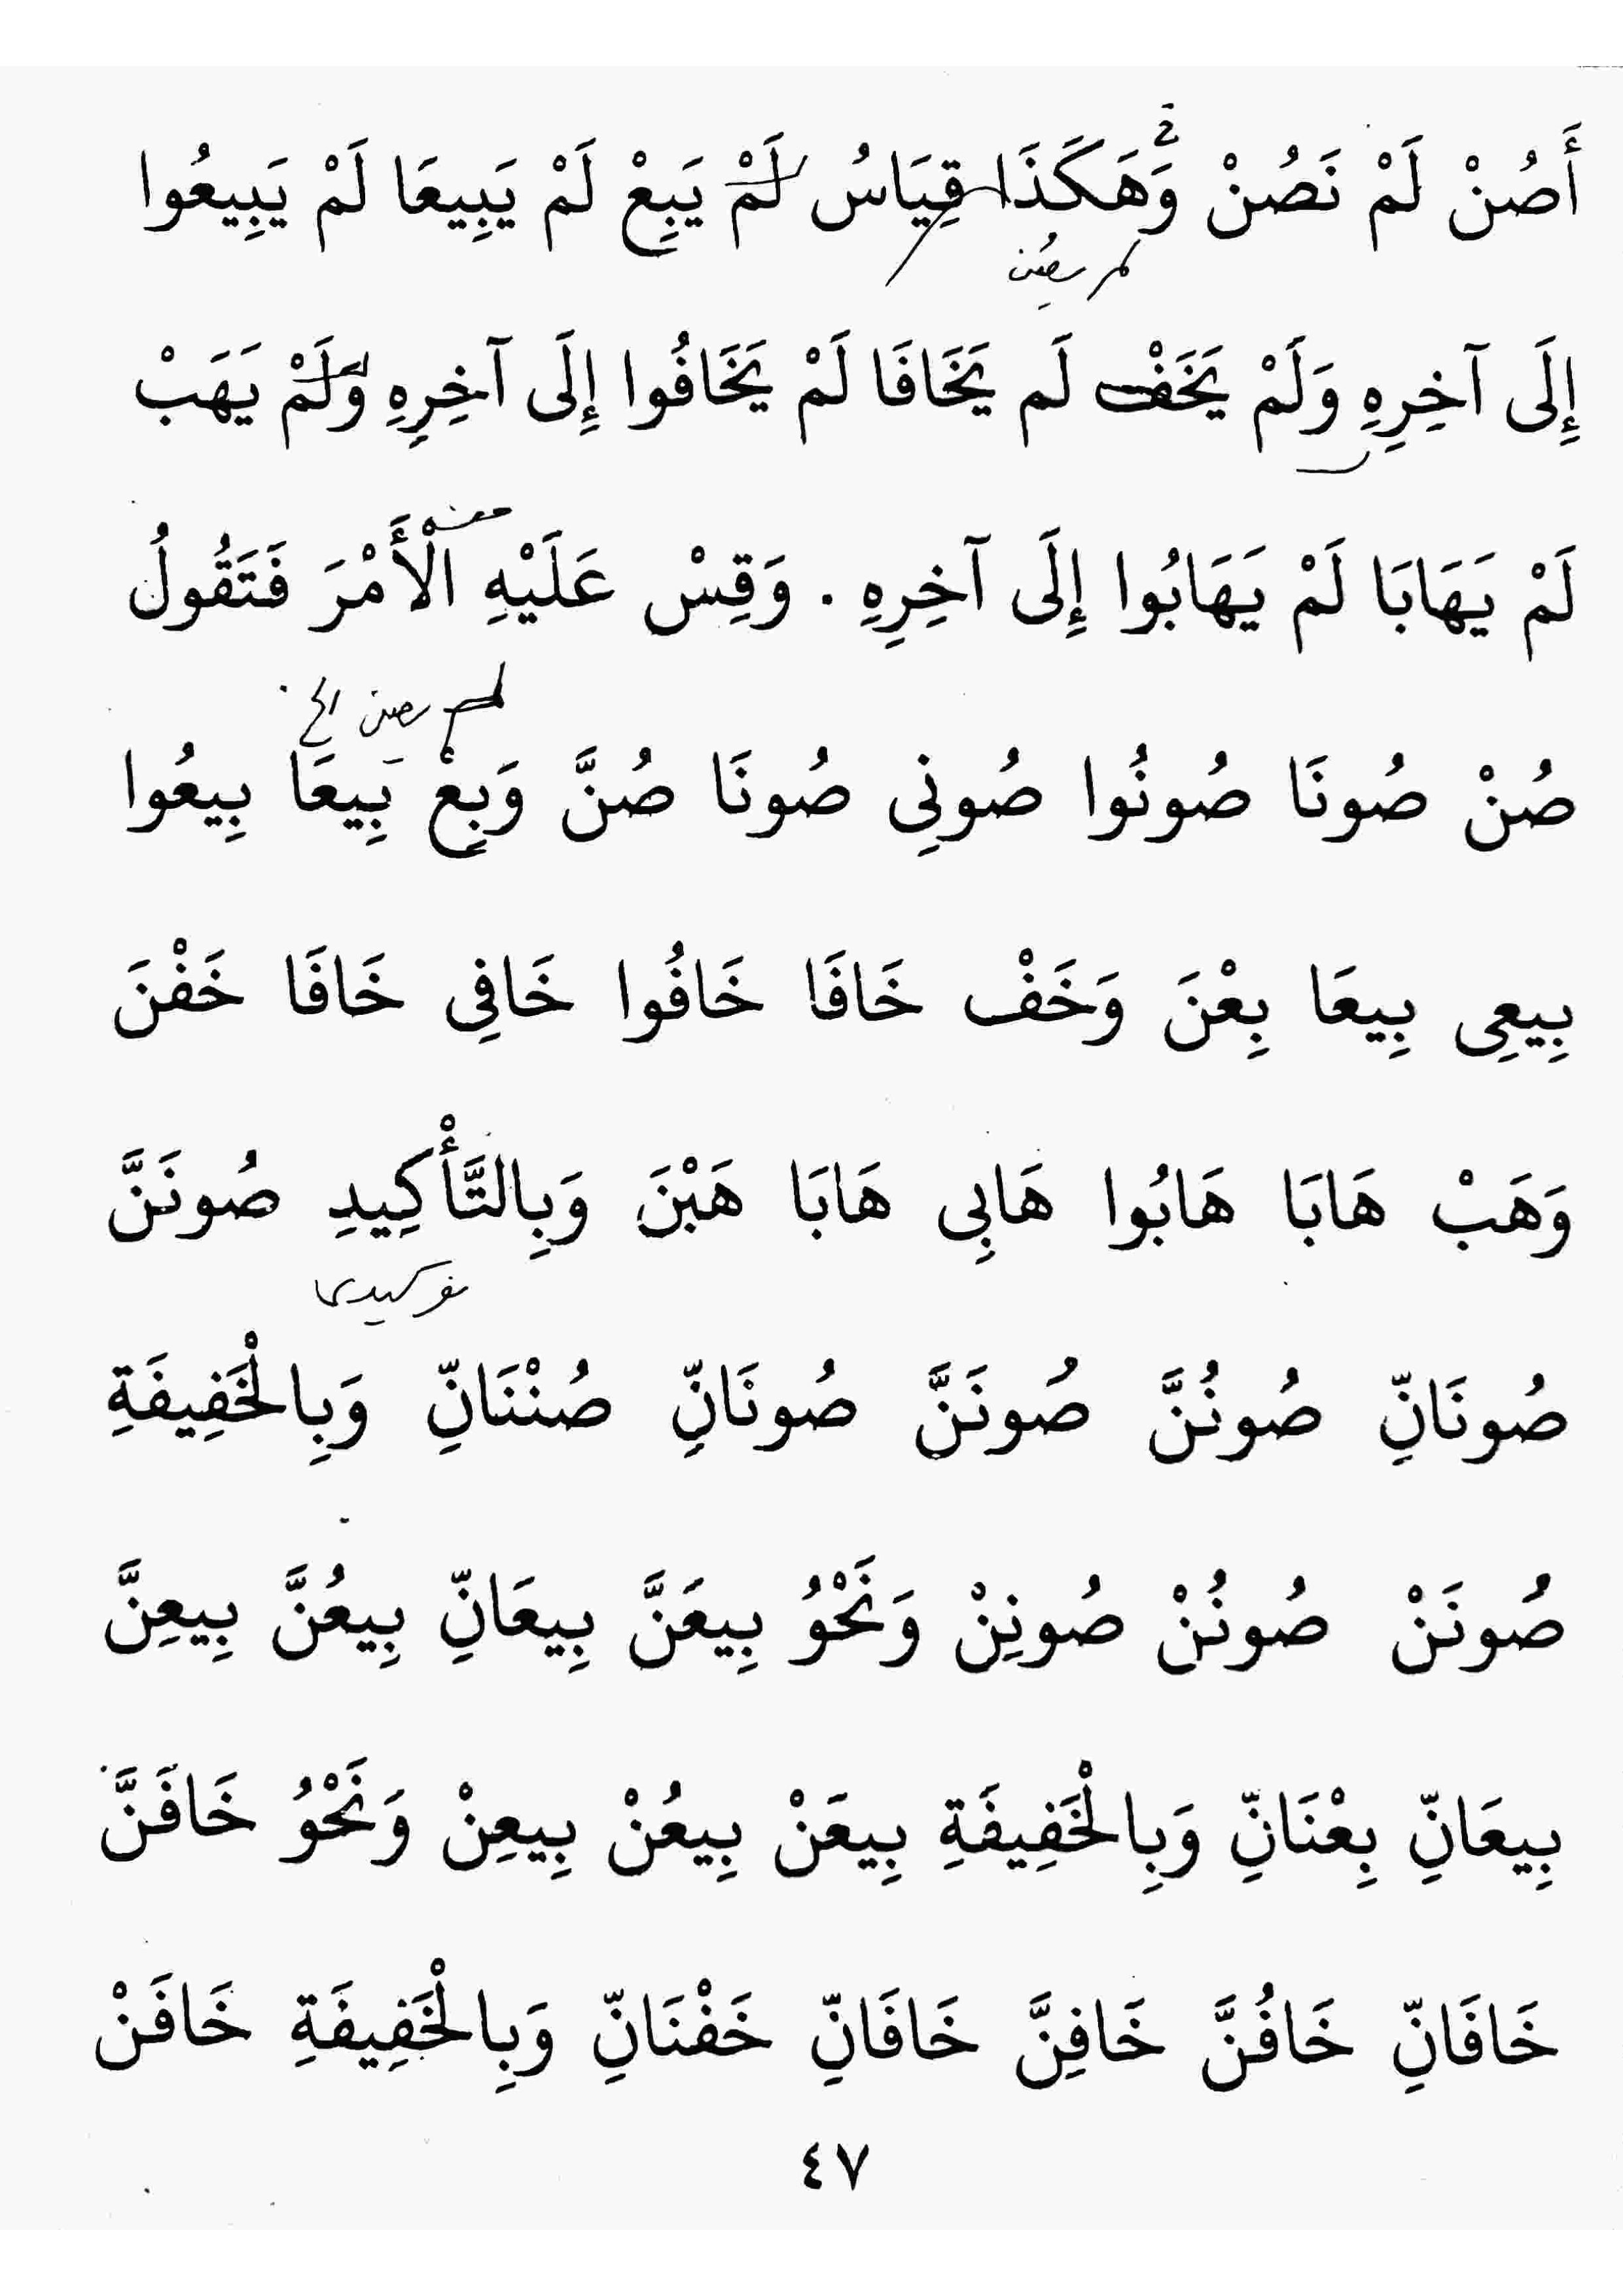 أَصُنْ لَمْ نَصُنْ وَهَكَذَا قِيَاسُ لَمْ يَبِعْ لَمْ يَبِيعَا لَمْ يَبِيعُوا
إِلَى آخِرِهِ وَلَمْ يَخَفْ لَم يَخَافَا لَمْ يَخَافُوا إِلَى آخِرِهِ وَلَمْ يَهَبْ
لَمْ يَهَابَا لَمْ يَهَابُوا إِلَى آخِرِهِ . وَقِسْ عَلَيْهِ الْأَمْرَ فَتَقُولُ
صُنْ صُونَا صُونُوا صُونِى صُونَا صُنَّ وَبِعْ بِيعَا بِيعُوا
بِيعِى بِيعَا بِعْنَ وَخَفْ خَافَا خَافُوا خَافِى خَافَا خَفْنَ
وَهَبْ هَابَا هَابُوا هَابِى هَابَا هَبْنَ وَبِالتَّأْكِيدِ صُونَنَّ
صُونَانِّ صُونُنَّ صُونَنَّ صُونَانِّ صُنْنَانِّ وَبِالْخَفِيفَةِ
صُونَنْ صُونُنْ صُونِنْ وَنَحْوُ بِيعَنَّ بِيعَانِّ بِيعُنَّ بِيعِنَّ
بِيعَانِّ بِعْنَانِّ وَبِالْخَفِيفَةِ بِيعَنْ بِيعُنْ بِيعِنْ وَنَحْوُ خَافَنَّ
خَافَانِّ خَافُنَّ خَافِنَّ خَافَانِّ خَفْنَانِّ وَبِالْخَفِيفَةِ خَافَنْ
٤٧